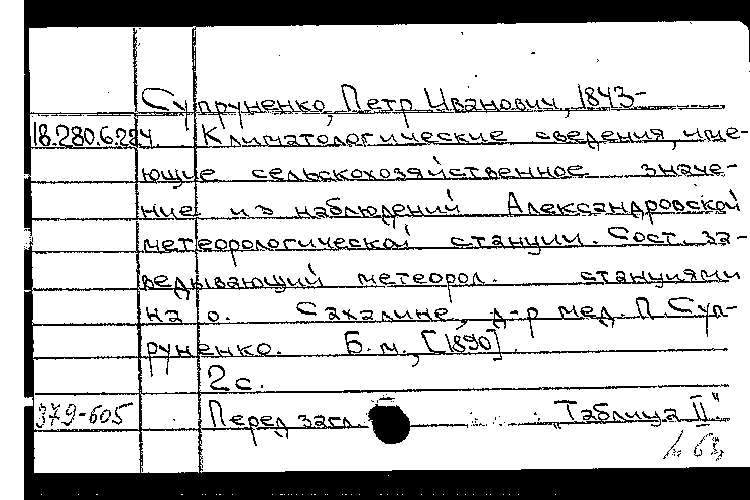 Супруненко, Петр Иванович, 1843-
18.280.6.284. Климатологические сведения, име-
ющие сельскохозяйственное значе-
ние из наблюдений Александровской
метеорологической станции. Сост. за-
ведывающий метеорол. станциями
на о. Сахалине, д-р мед. П. Суп-
руненко. Б.м., [1890].
2 с.
379-605 Перед загл. : "Таблица II".